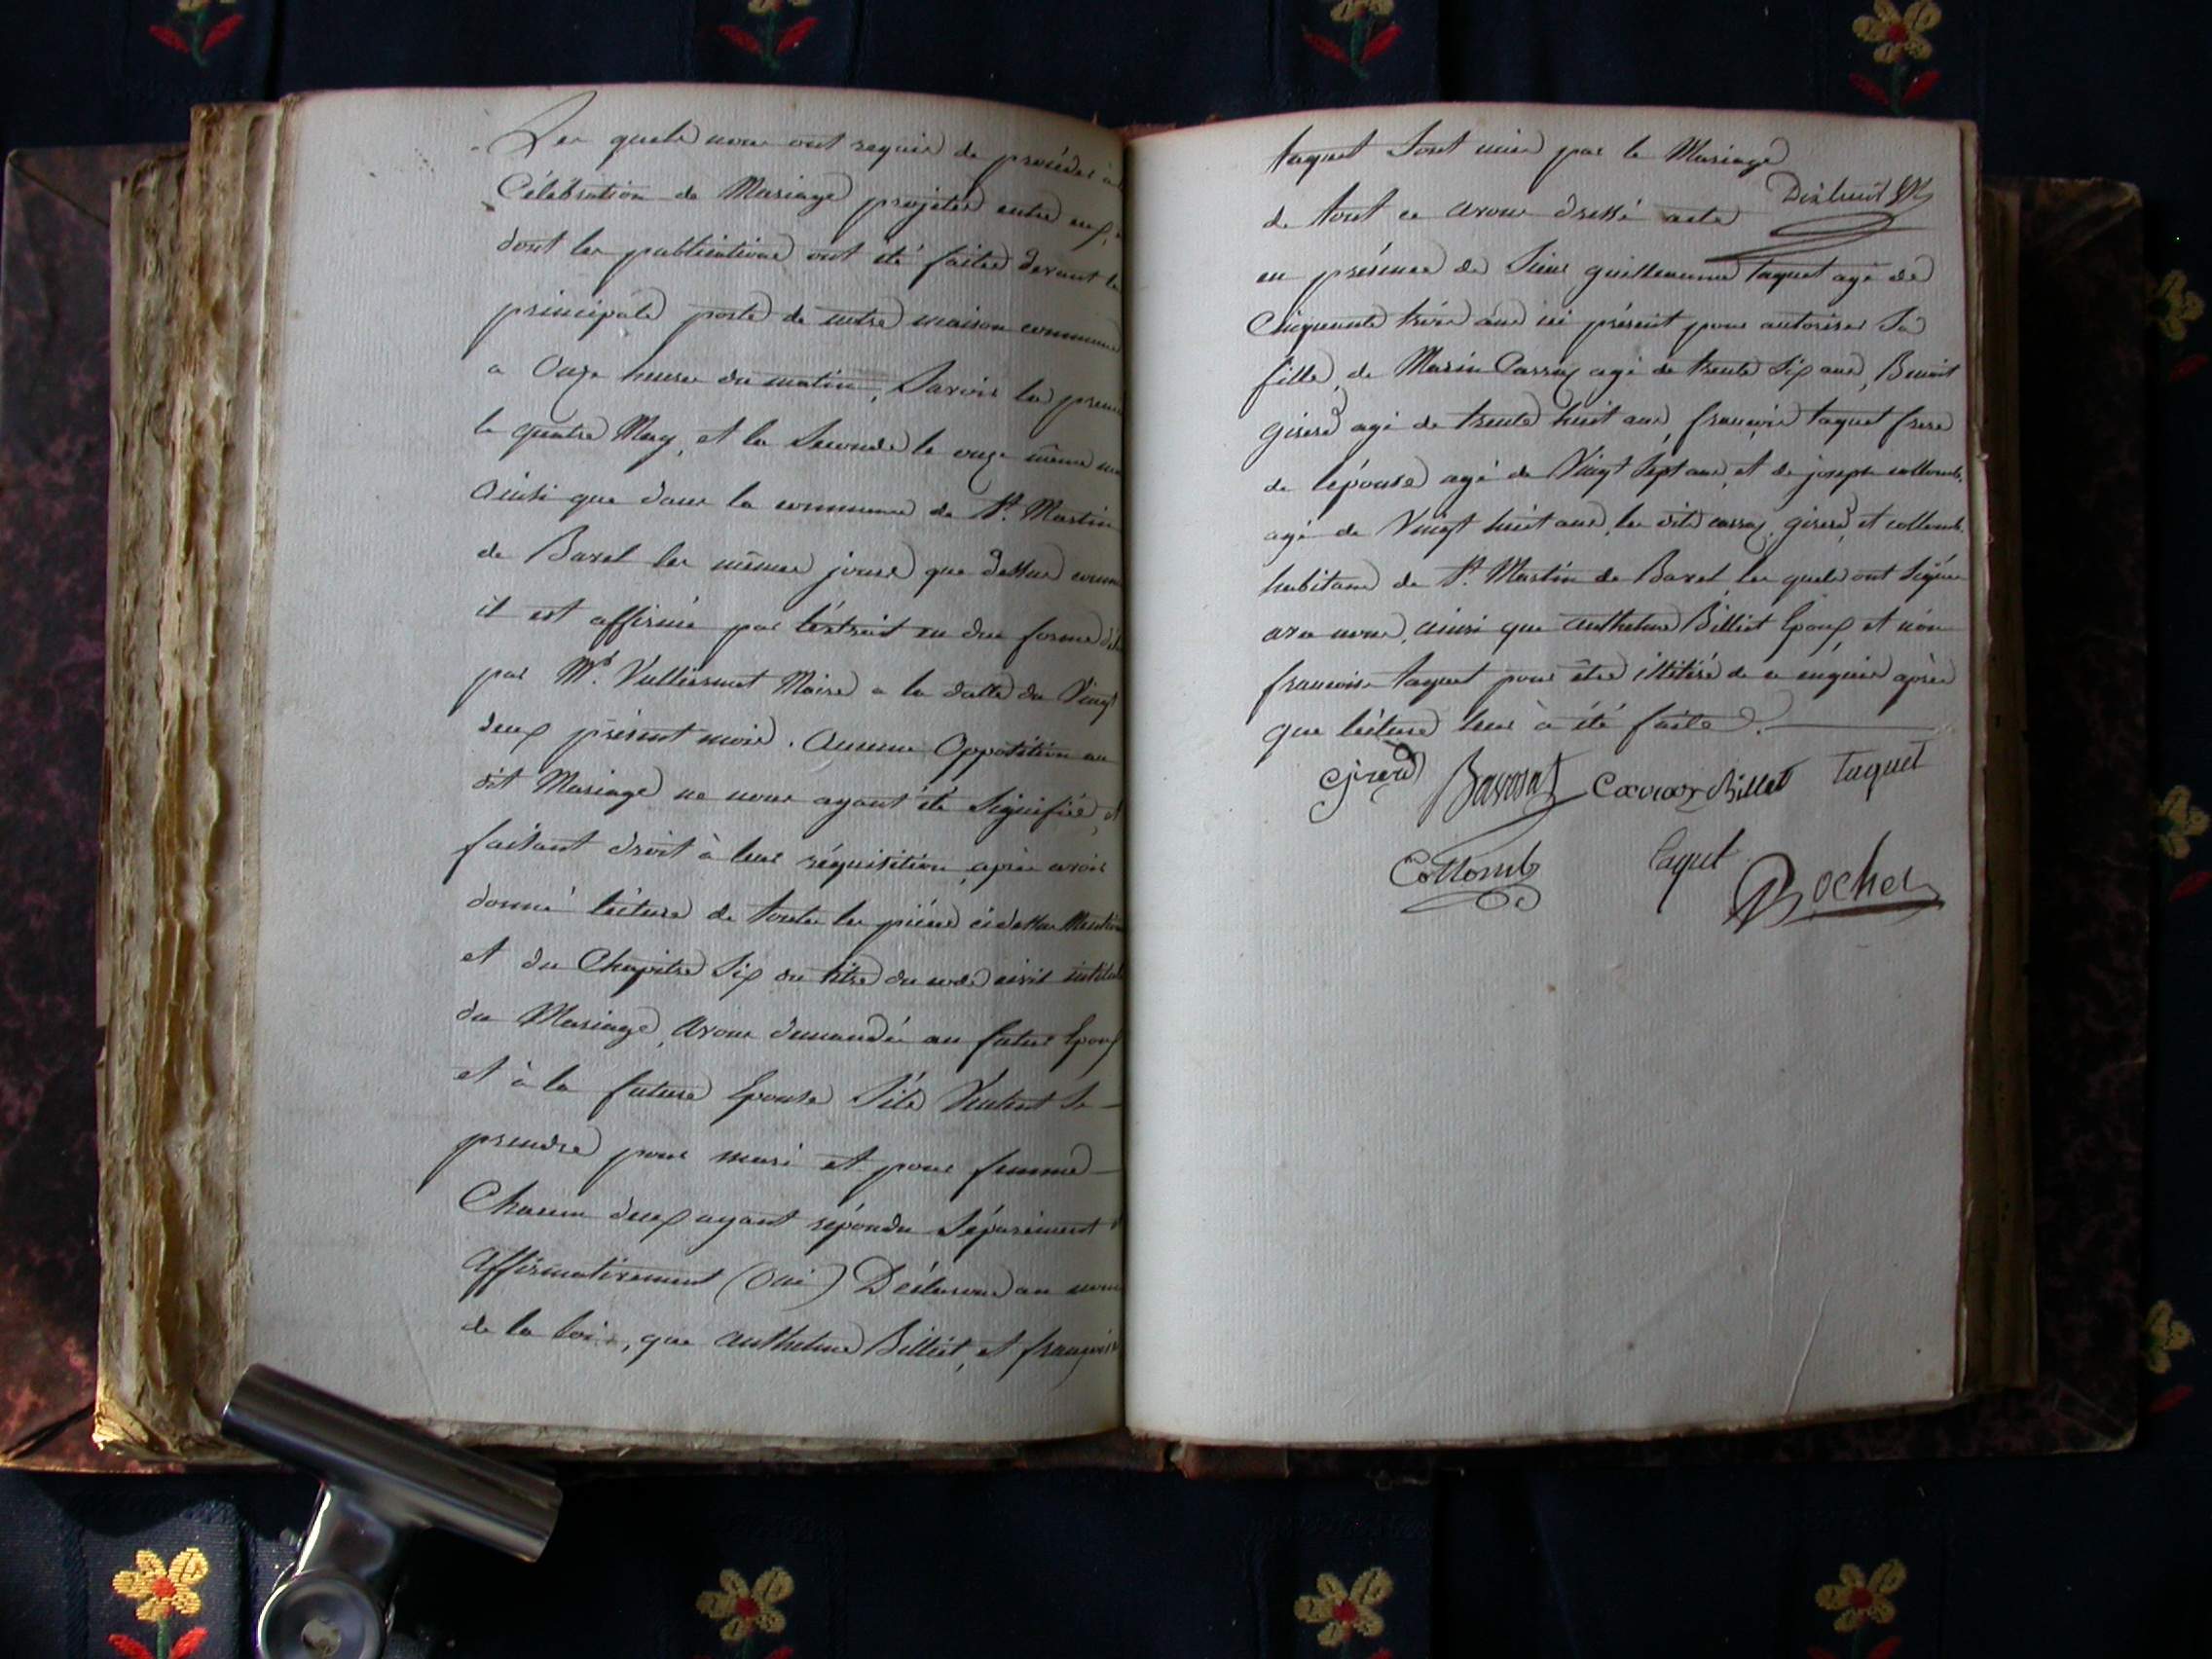 Les quels nous ont requis de procéder à
Célébration de Mariage projetter entre eux,
dont les publications ont été faites devant la
principale porte de notre maison commune
a Onze heures du matin, Savoir la prem
le quatre May, et la Seconde le onze même
Ainsi que dans la commune de St. Martin
de Bavel les mêmes jours que dessus comm
il est affirmé par l'extrait en due forme
par Mr. Vulliermet Maire a la datte du Vingt
deux présent mois. Aucune Opposition au
dit Mariage ne nous ayant été Signifiée, et
faisant droit à leur réquisition, après avoir
donné lecture de toutes les pièces cidessus Mention
et du Chapitre Six du titre du code civil intitulé
du Mariage, avons demandé au futur Epoux
et à la future Epouse S'ils Veulent Se
prendre pour mari et pour femme
Chacun deux ayant répondu Séparément
affirmativement (Oui) Déclarons au nom
de la loi, que Anthelme Billiet, et françoise
taquet Sont unis par le Mariage
de tout ce avons dressé acte
en présence de Sieur guillaume taquet agé de
Cinquante treize ans ici présent pour autoriser Sa
fille, de Marin Carraz agé de trente Six ans, Benoit
girerd agé de trente huit ans, françois taquet frere
de lépouse agé de Vingt Sept ans, et de joseph collomb
agé de Vingt huit ans, les dits carraz, girerd, et collomb
habitans de St. Martin de Bavel, les quels ont Signé
avec nous, ainsi que Anthelme Billiet Epoux et non
francoise taquet pour être illitéré de ce enquis après
que lecture leur à été faite.
Girerd Bavosat Carraz Billet Taquet
Collomb taquet Rochet